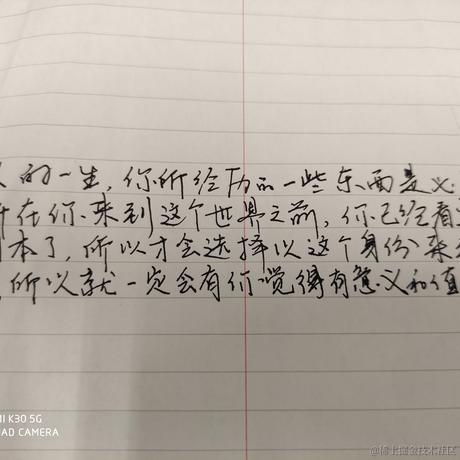 的一生，你所经历的一些东西是必
在你来到这个世界之前，你已经看
本了，所以才会选择以这个身份来
，所以就一定会有你觉得有意义和值
MI K30 5G
AD CAMERA
@稀土掘金技术社区